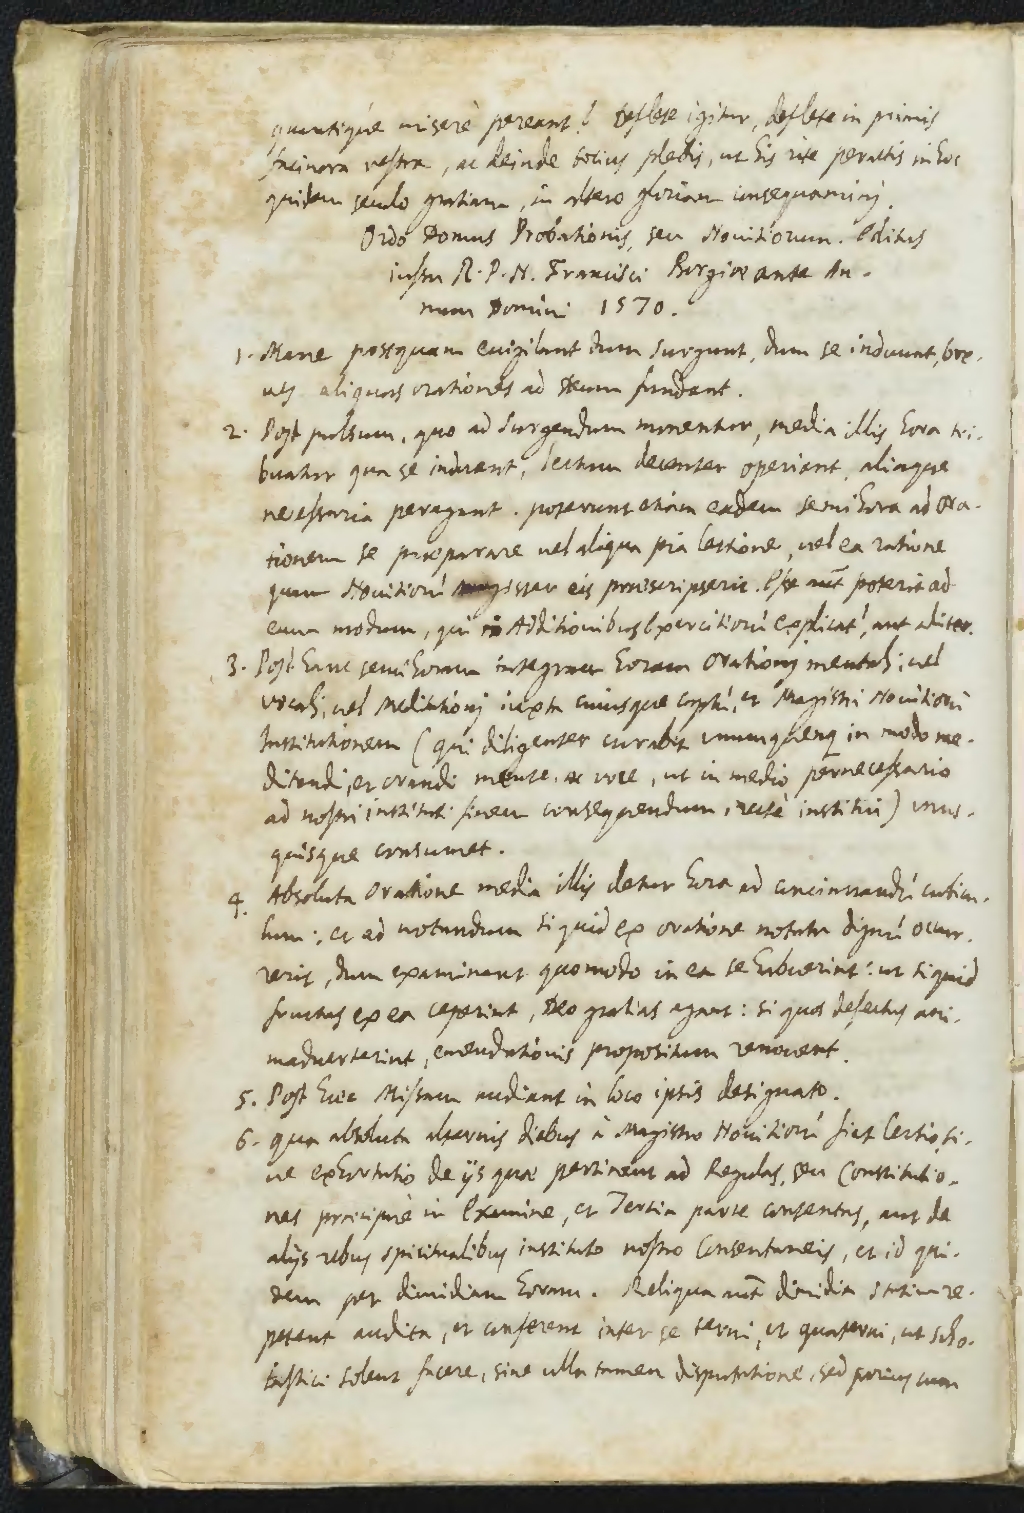 quantique misere pereant! Deflete igitur, deflete in primis
facinora vestra, ac deinde totius plebis, ut his rite peractis in hoc
quidem seculo gratiam, in altero gloriam consequamini.
Ordo Domus Probationis, seu Nouitiorum. Editus
iussu R. P. N. Francisci Borgiæ ante An-
num Domini 1570.
1. Mane postquam euigilant dum surgunt, dum se induunt, bre-
ues aliquas orationes ad Deum fundant.
2. Post pulsum, quo ad surgendum monentur, media illis hora tri-
buatur qua se induant, lectum decenter operiant, aliaque
necessaria peragant. poterunt etiam eadem semihora ad ora-
tionem se præparare uel aliqua pia lectione, uel ea ratione
quam Nouitiorú magister eis præscripserit. Esse aút poterit ad
eum modum, qui in Additionibus Exercitiorú explicat', aut aliter.
3. Post hanc semihoram integram horam orationj mentalj, uel
vocalj, uel Meditationj iuxta cuiusque captú, et Magistri Nouitiorú
Institutionem (qui diligenter curabit unumquenq in modo me-
ditandi, et orandi mente, ac voce, ut in medio pernecessario
ad nostri instituti finem consequendum, recté institui) unus-
quisque consumet.
4. Absoluta Oratione media illis detur hora ad concinnandú cubicu-
lum: et ad notandum si quid ex oratione notatu dignú occur-
rerit, dum examinant quomodo in ea se habuerint: ut si quid
fructus ex ea ceperint, Deo gratias agant: si quos defectus ani-
maduerterint, emendationis propositum renouent.
5. Post hæc Missam audiant in loco ipsis designato.
6. qua absoluta alternis diebus à Magistro Nouitiorú fiet lectio, si-
ue exhortatio de ijs quæ pertinent ad Regulas, seu Constitutio-
nes præcipuè in Examine, et Tertia parte contentas, aut de
alijs rebus spiritualibus instituto nostro consentaneis, et id qui-
dem per dimidiam horam. Reliqua aút dimidia statim re-
petent audita, et conferent inter se terni, et quaterni, ut scho-
lastici solent facere, sine ulla tamen disputatione, sed potius cum